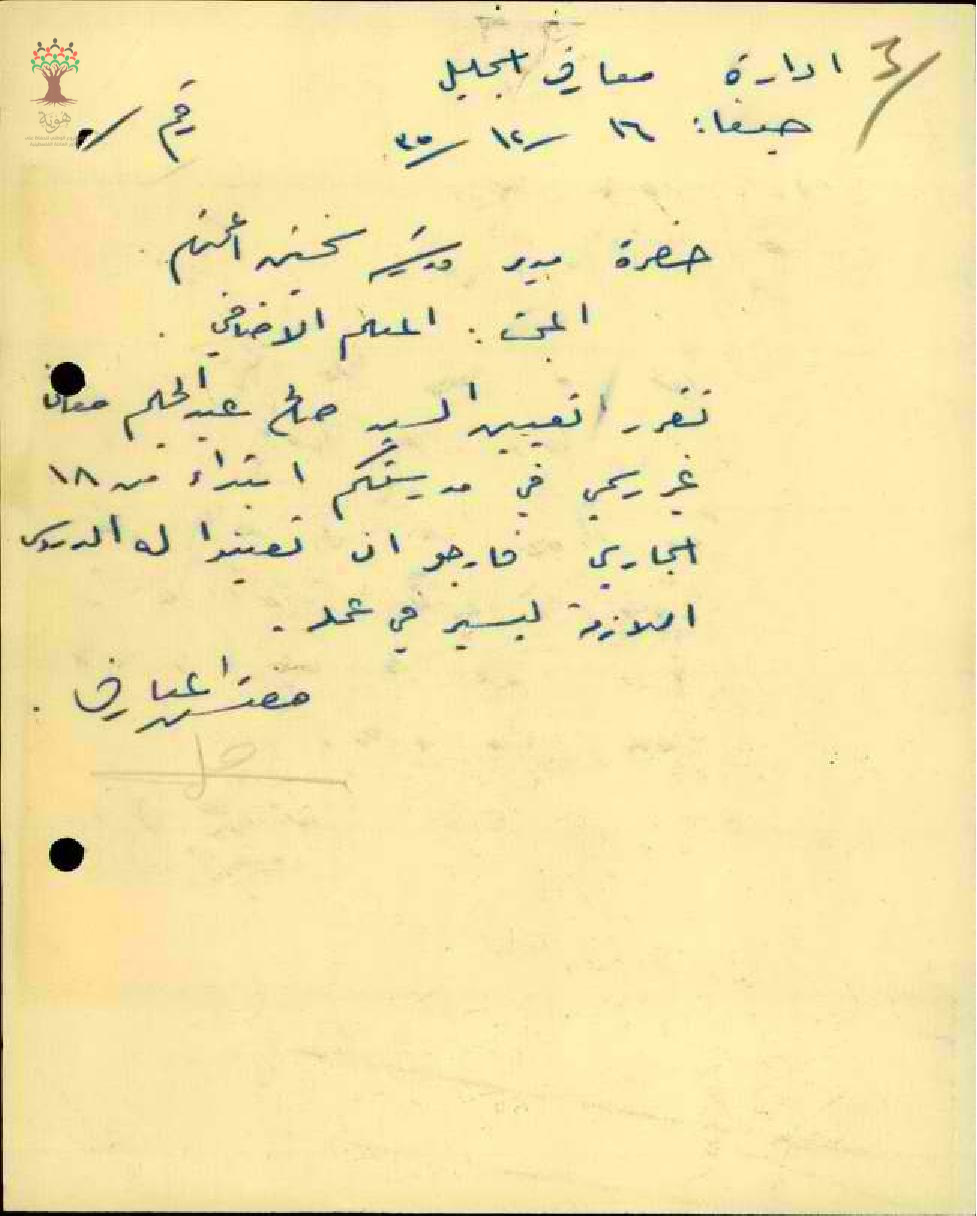 ٣/
ادارة معارف الجليل
حيفا: ١٦/١٢/٣٥
رقم /
حضرة مدير مدرسة المحترم
المبحث: المعلم الاضافي.
تقرر تعيين السيد صالح عبد الحليم معلما
غير رسمي في مدرستكم ابتداء من ١٨
الجاري فارجو ان تعينوا له الدروس
اللازمة ليسير في عمله.
مفتش المعارف.
هوية